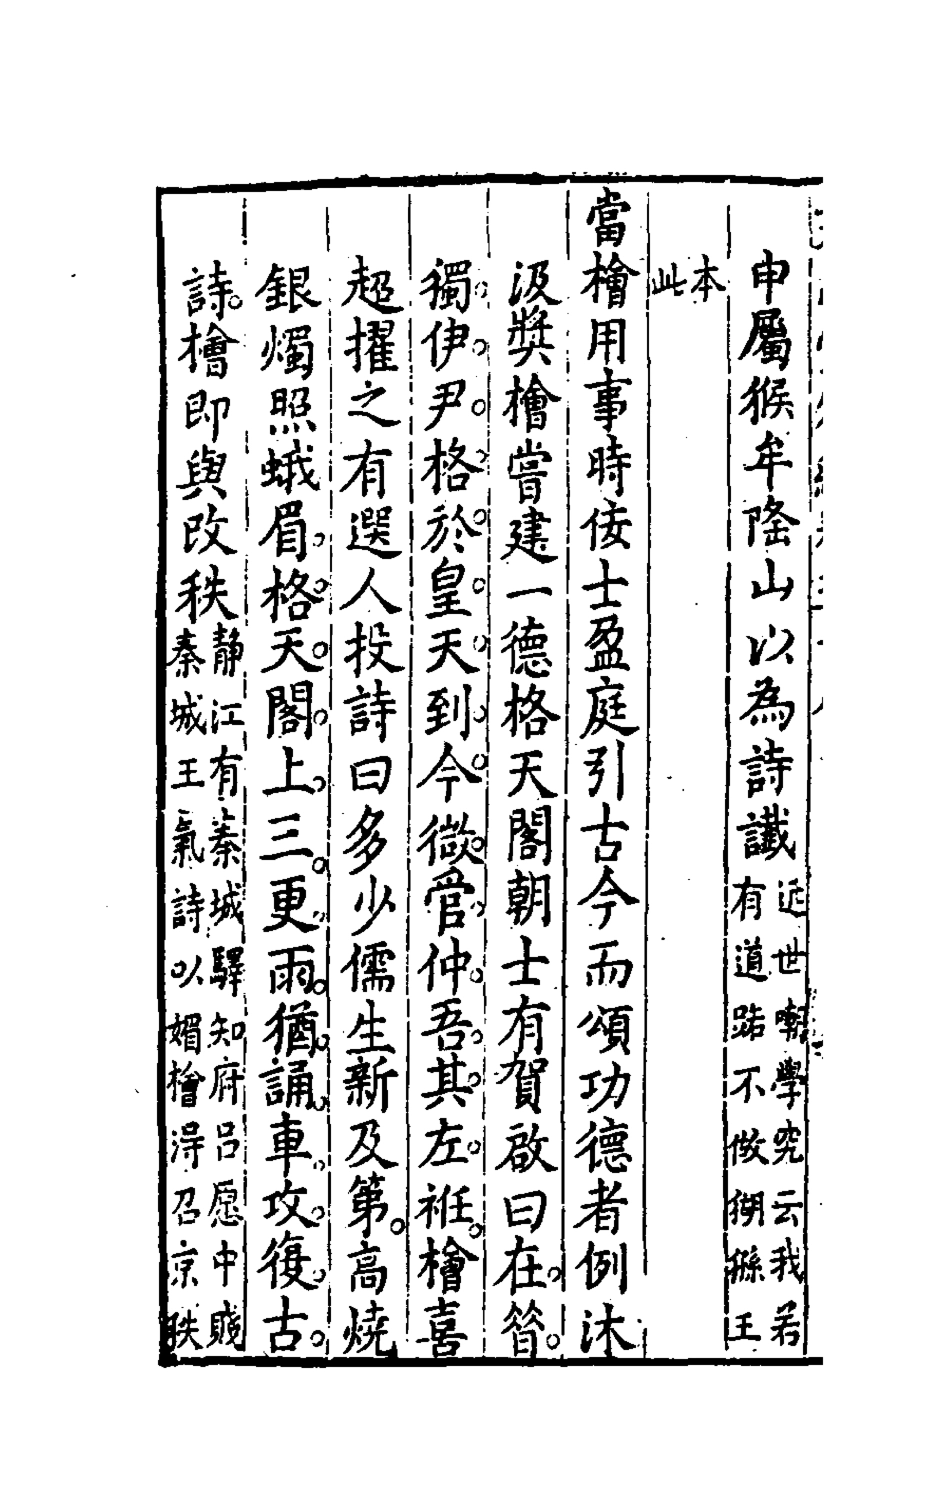 申屬猴牟隆山以為詩讖近世嘲學究云我若
有道路不做猢猻王
本
此
當檜用事時佞士盈庭引古今而頌功德者例沐
汲奬檜嘗建一德格天閣朝士有賀啟曰在昔
獨伊尹格於皇天到今微管仲吾其左衽檜喜
超擢之有選人投詩曰多少儒生新及第高燒
銀燭照蛾眉格天閣上三更雨猶誦車攻復古
詩檜即與改秩静江有秦城驛知府呂愿中賦
秦城王氣詩以媚檜得召京秩